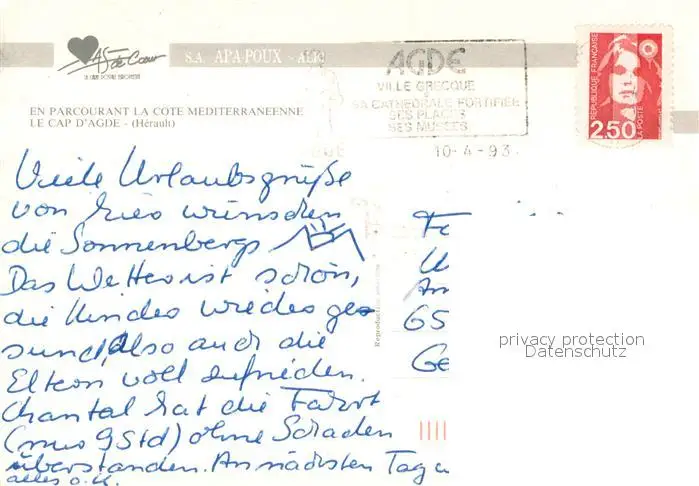 As de Cœur
S.A. APA-POUX - ALBI
EN PARCOURANT LA COTE MEDITERRANEENNE
LE CAP D'AGDE - (Hérault)
AGDE
VILLE GRECQUE
SA CATHEDRALE FORTIFIEE
SES PLAGES
SES MUSEES
10-4-93
REPUBLIQUE FRANÇAISE
LA POSTE
2,50
Viele Urlaubsgrüße
von hier wünschen
die Sonnenbergs
Das Wetter ist schön,
die Kinder wieder ge-
sund, also auch die
Eltern voll zufrieden.
Chantal hat die Fahrt
(nur 9 Std) ohne Schaden
überstanden. Am nächsten Tag
alles o.k.
Fa
65
Ge
Reproduc
privacy protection
Datenschutz